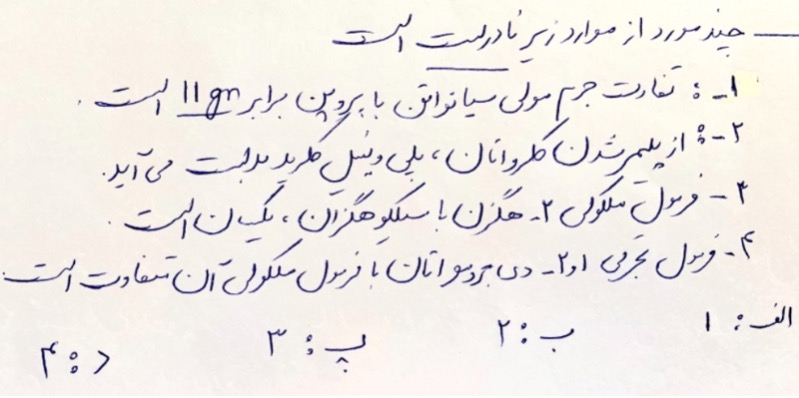 — چند مورد از موارد زیر نادرست است
۱- : تفاوت جرم مولی سیانواتن با پروپن برابر ۱۱ gr است .
۲- : از پلیمر شدن کلرواتان ، پلی وینیل کلرید بدست می آید .
۳- فرمول مولکولی ۲- هگزن با سیکلوهگزان ، یکسان است .
۴- فرمول تجربی ۱و۲- دی برمو اتان با فرمول مولکولی آن متفاوت است .
الف : ۱ ب : ۲ پ : ۳ د : ۴